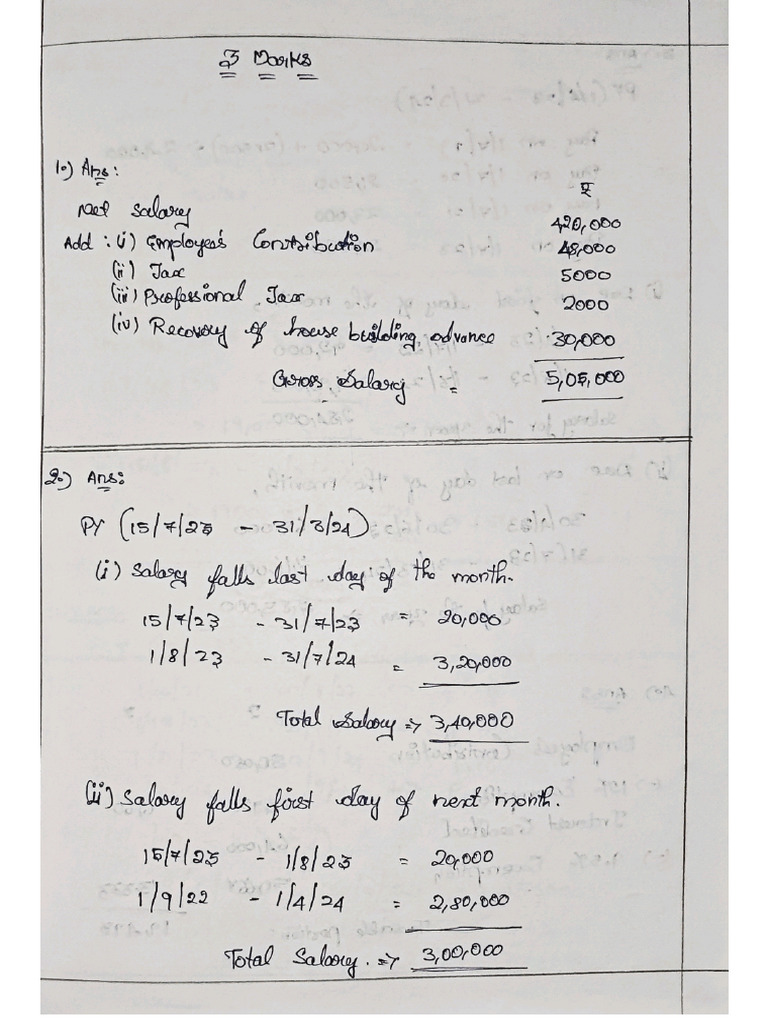 3 Marks
1.) Ans:
₹
Net Salary 420,000
Add : (i) Employee's Contribution 48,000
(ii) Tax 5000
(iii) Professional Tax 2000
(iv) Recovery of house building advance 30,000
Gross Salary = 5,05,000
2.) Ans:
PY (15/7/23 - 31/3/24)
(i) Salary falls last day of the month.
15/7/23 - 31/7/23 = 20,000
1/8/23 - 31/7/24 = 3,20,000
Total Salary => 3,40,000
(ii) Salary falls first day of next month.
15/7/23 - 1/8/23 = 20,000
1/9/22 - 1/4/24 = 2,80,000
Total Salary. => 3,00,000